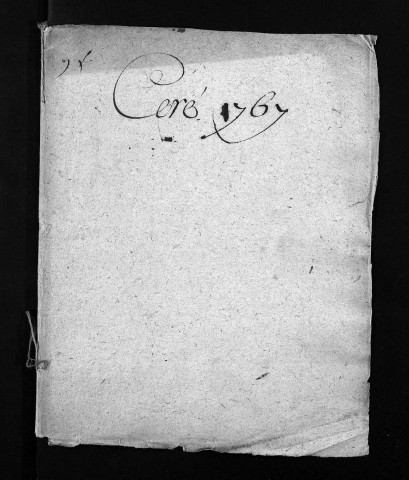 Ceré 1767